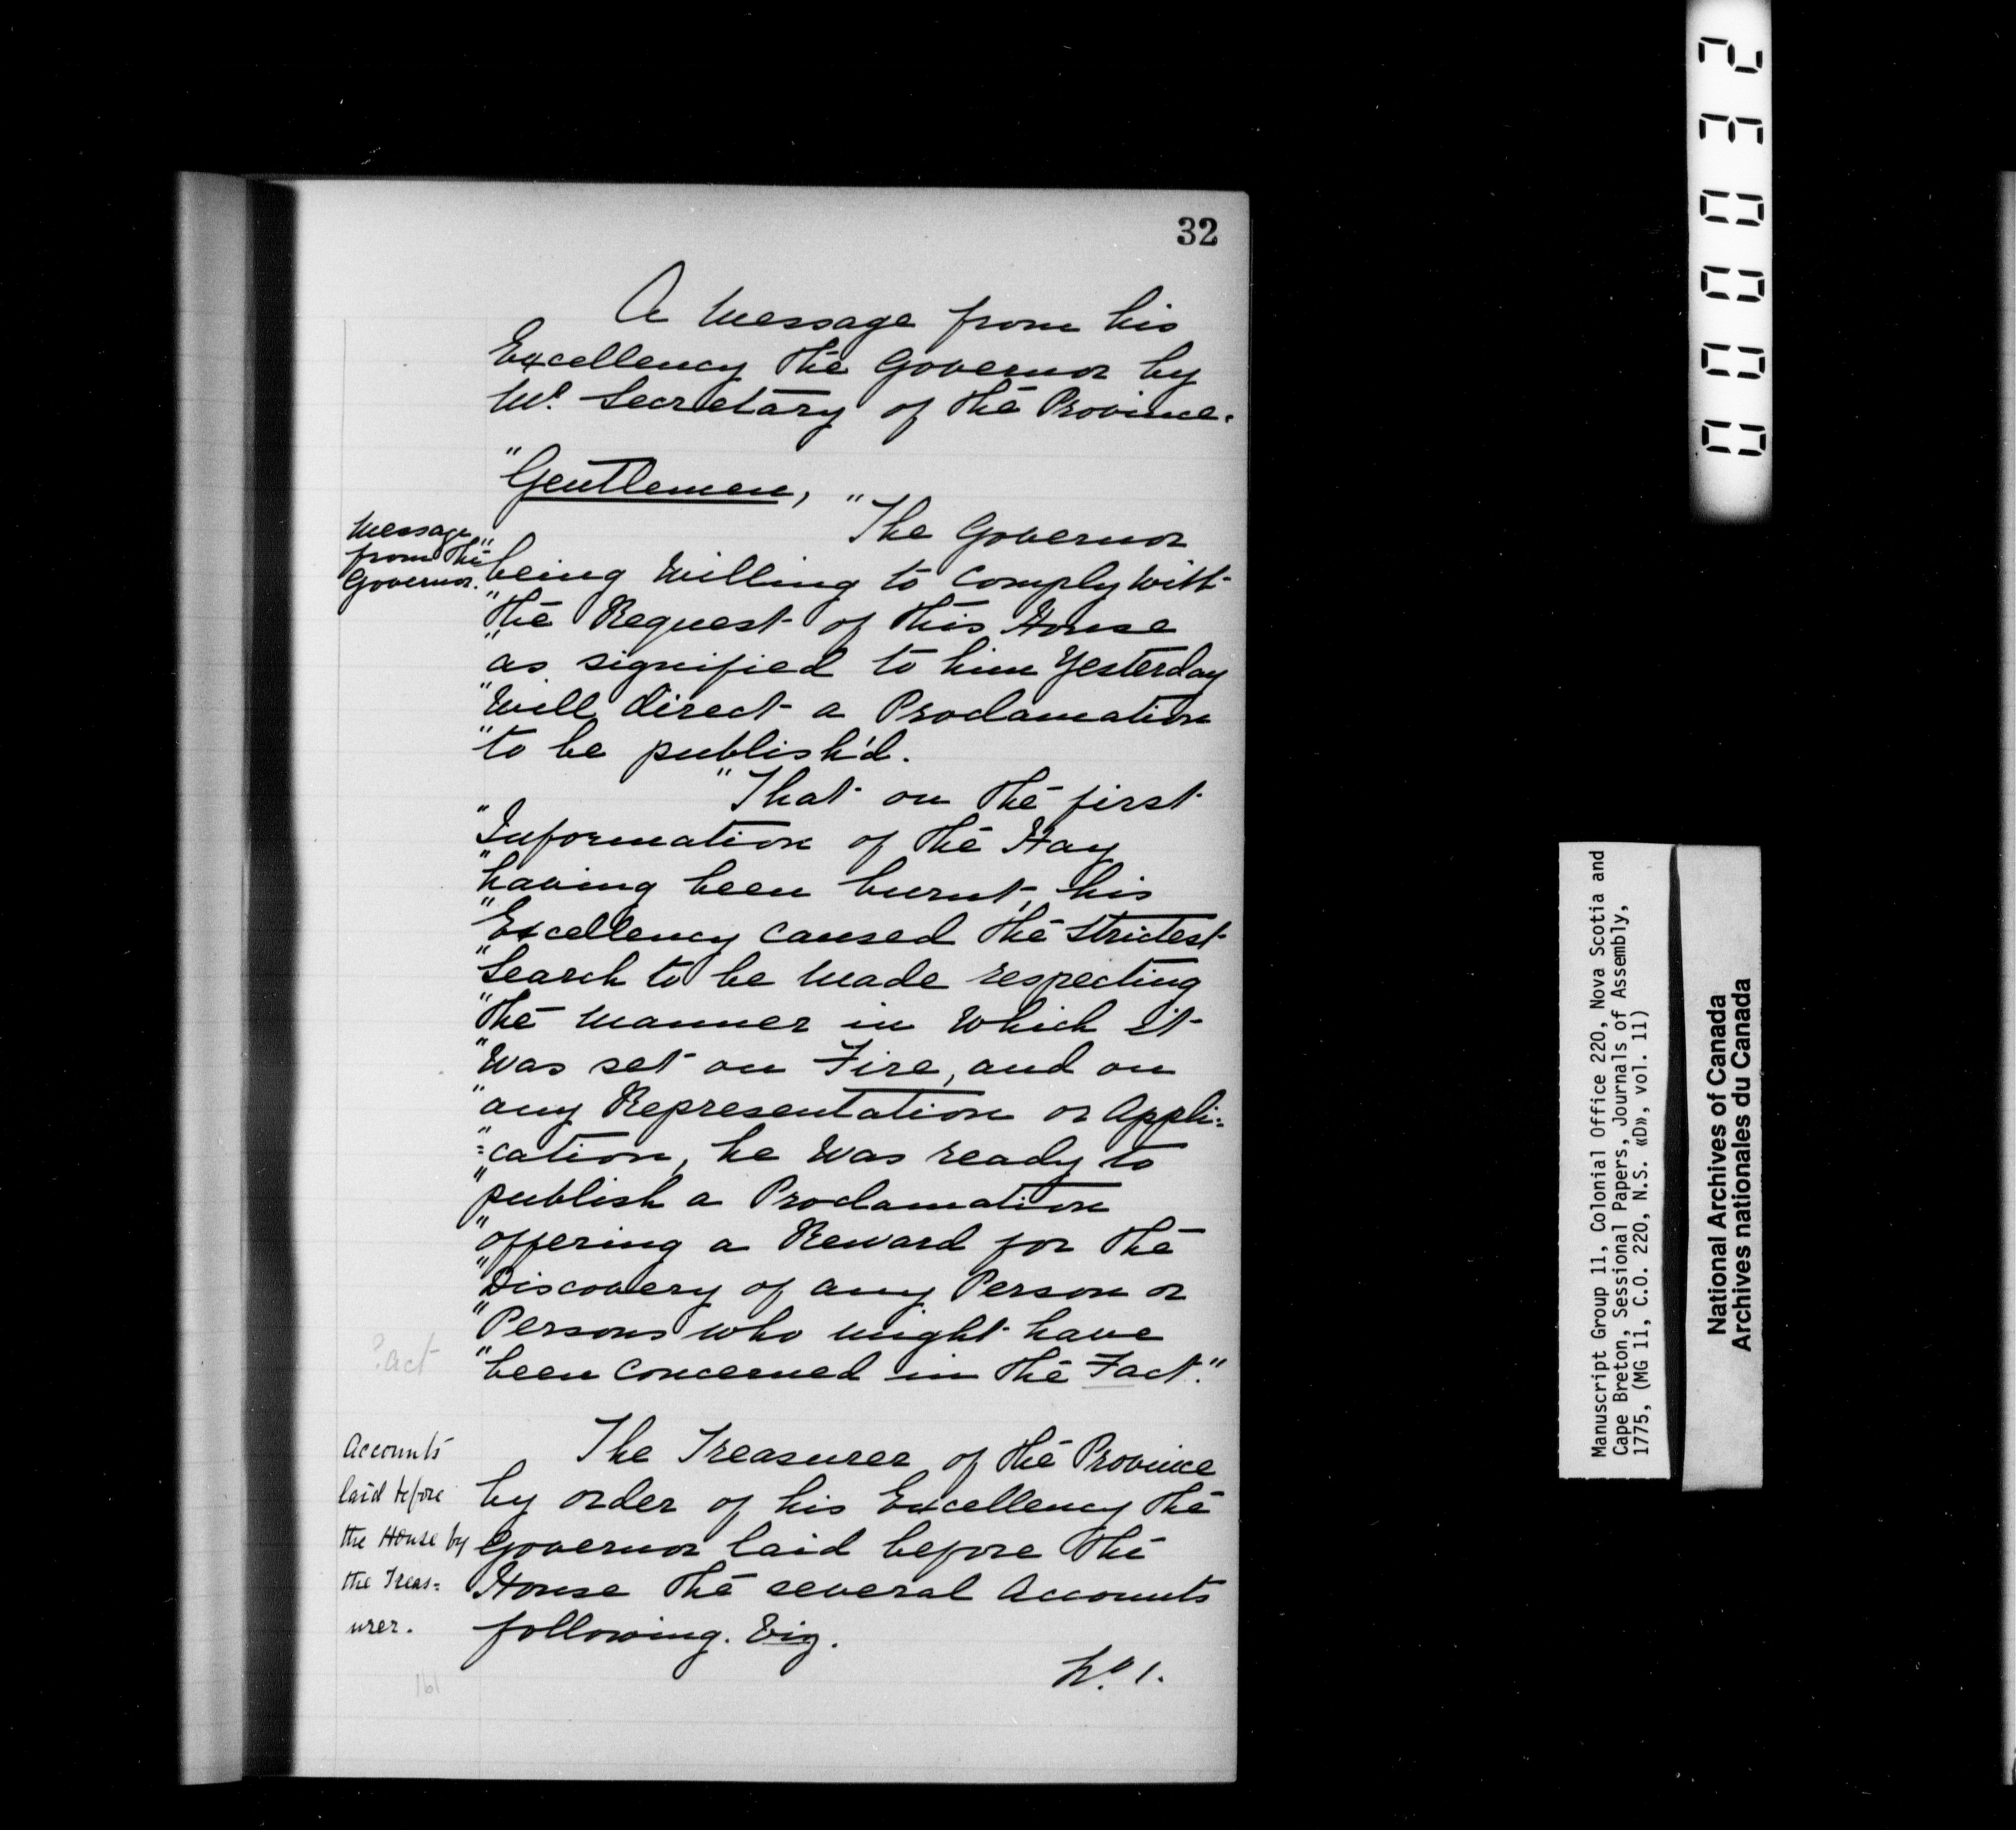 32
A Message from his
Excellency the Governor by
Mr. Secretary of the Province.
"Gentlemen,
"The Governor
Message
from the
Governor.
"being Willing to Comply With
"the Request of this House
"as signified to him Yesterday
"Will direct a Proclamation
"to be publish'd.
"That on the first
"Information of the Hay
"having been burnt, his
"Excellency caused the Strictest
"Search to be Made respecting
"the Manner in Which it
"Was set on Fire, and on
"any Representation or Appli=
"=cation, he Was ready to
"publish a Proclamation
"offering a Reward for the
"Discovery of any Person or
"Persons who might have
?act
"been concerned in the Fact."
Accounts
laid before
the House by
the Treas=
urer.
The Treasurer of the Province
by order of his Excellency the
Governor laid before the
House the several Accounts
following. Viz.
No. 1.
161
00032
Manuscript Group 11, Colonial Office 220, Nova Scotia and
Cape Breton, Sessional Papers, Journals of Assembly,
1775, (MG 11, C.O. 220, N.S. «D», vol. 11)
National Archives of Canada
Archives nationales du Canada